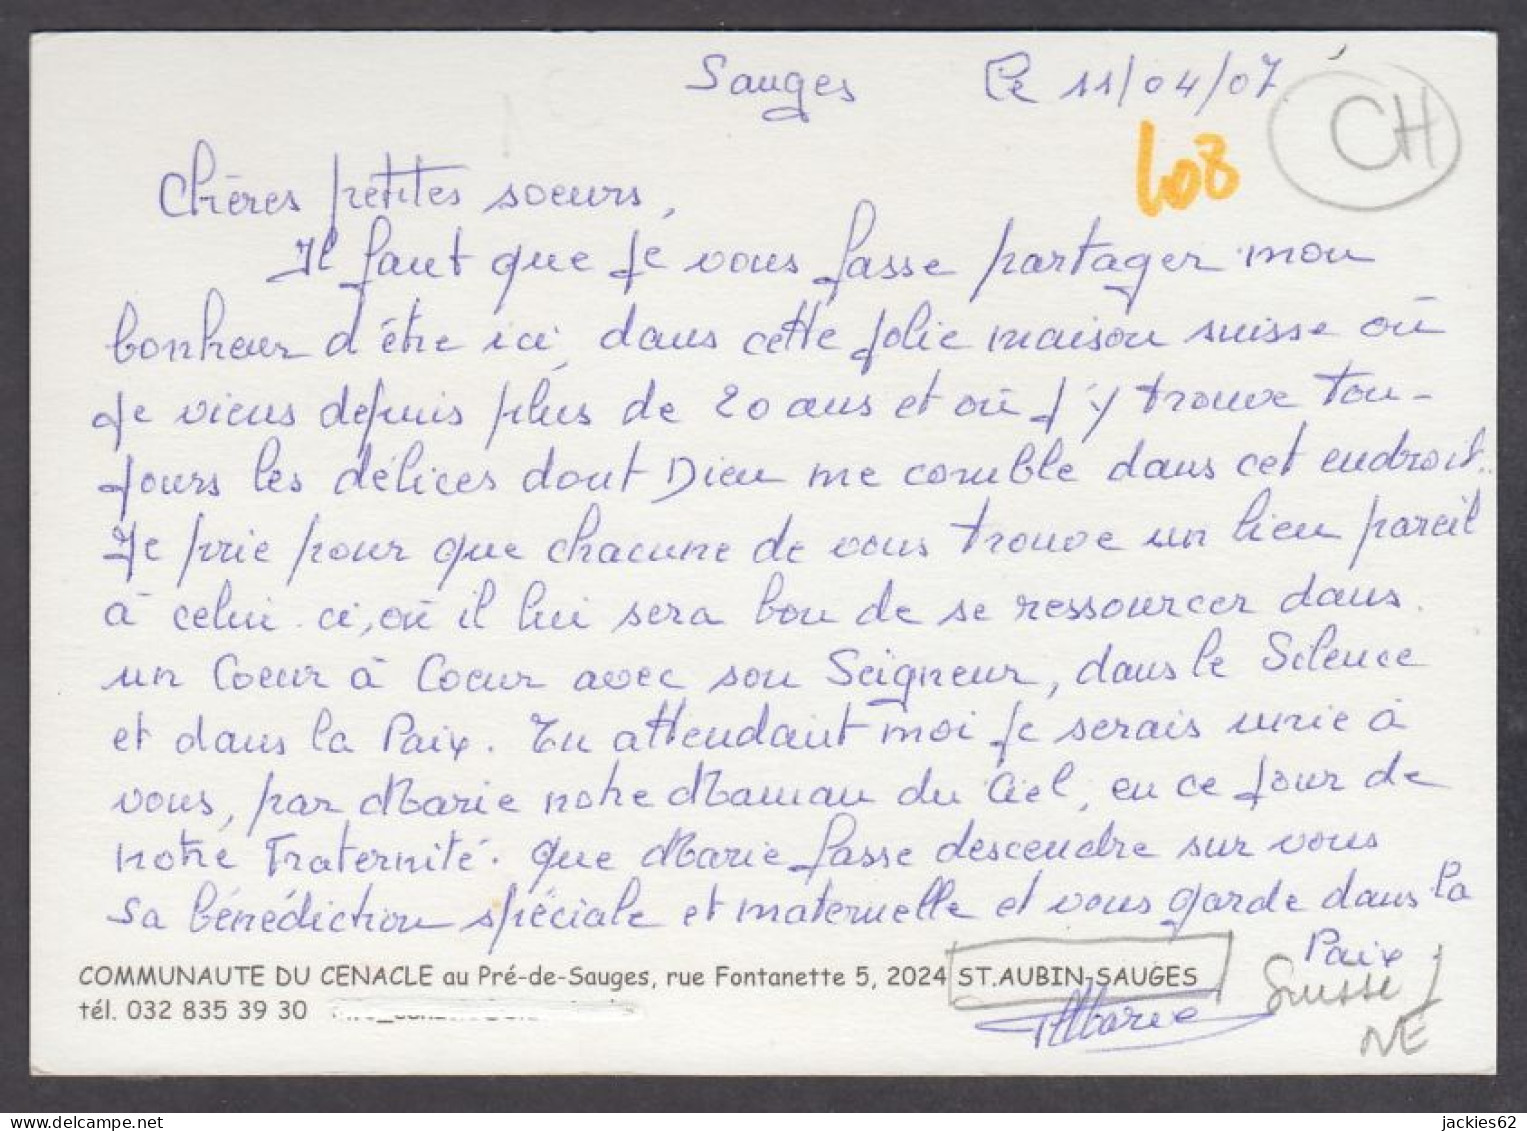 Sauges Le 11/04/07
CH
408
Chères petites soeurs,
Il faut que je vous fasse partager mon
bonheur d'être ici, dans cette jolie maison suisse où
je viens depuis plus de 20 ans et où j'y trouve tou-
jours les délices dont Dieu me comble dans cet endroit..
Je prie pour que chacune de vous trouve un lieu pareil
à celui-ci, où il lui sera bon de se ressourcer dans
un Coeur à Coeur avec son Seigneur, dans le Silence
et dans la Paix. En attendant moi je serais unie à
vous, par Marie notre Maman du Ciel, en ce jour de
notre Fraternité. Que Marie fasse descendre sur vous
sa bénédiction spéciale et maternelle et vous garde dans la
Paix
COMMUNAUTE DU CENACLE au Pré-de-Sauges, rue Fontanette 5, 2024 ST.AUBIN-SAUGES
Suisse
tél. 032 835 39 30
NE
jackies62